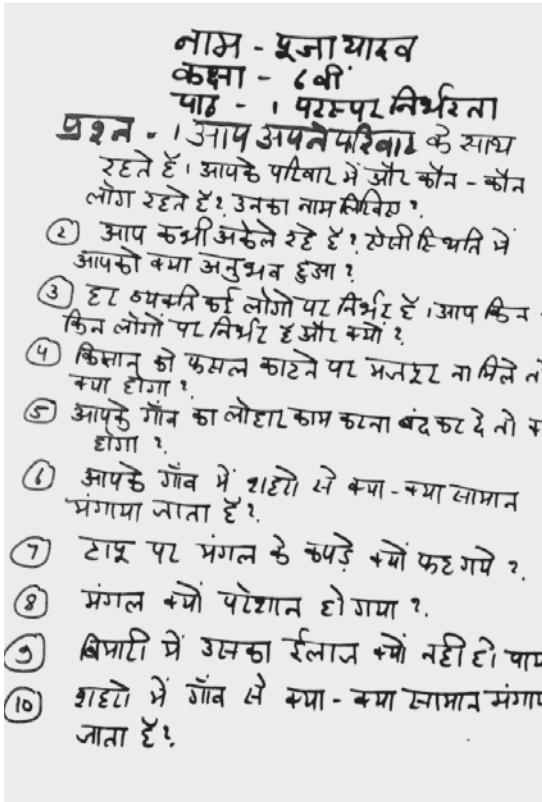 नाम - पूजा यादव
कक्षा - 6वीं
पाठ - 1 परस्पर निर्भरता
प्रश्न - 1 आप अपने परिवार के साथ
रहते हैं। आपके परिवार में और कौन - कौन
लोग रहते हैं? उनका नाम लिखिए?
② आप कभी अकेले रहे हैं? ऐसी स्थिति में
आपको क्या अनुभव हुआ?
③ हर व्यक्ति कई लोगो पर निर्भर है। आप किन -
किन लोगों पर निर्भर हैं और क्यों?
④ किसान को फसल काटने पर मजदूर ना मिले तो
क्या होगा?
⑤ आपके गाँव का लोहार काम करना बंद कर दे तो
होगा?
⑥ आपके गाँव में शहरो से क्या - क्या सामान
मंगाया जाता है?
⑦ टापू पर मंगल के कपड़े क्यों फट गये?
⑧ मंगल क्यों परेशान हो गया?
⑨ बिमारी में उसका ईलाज क्यों नही हो पाय
⑩ शहरो में गाँव से क्या - क्या सामान मंगाय
जाता है?